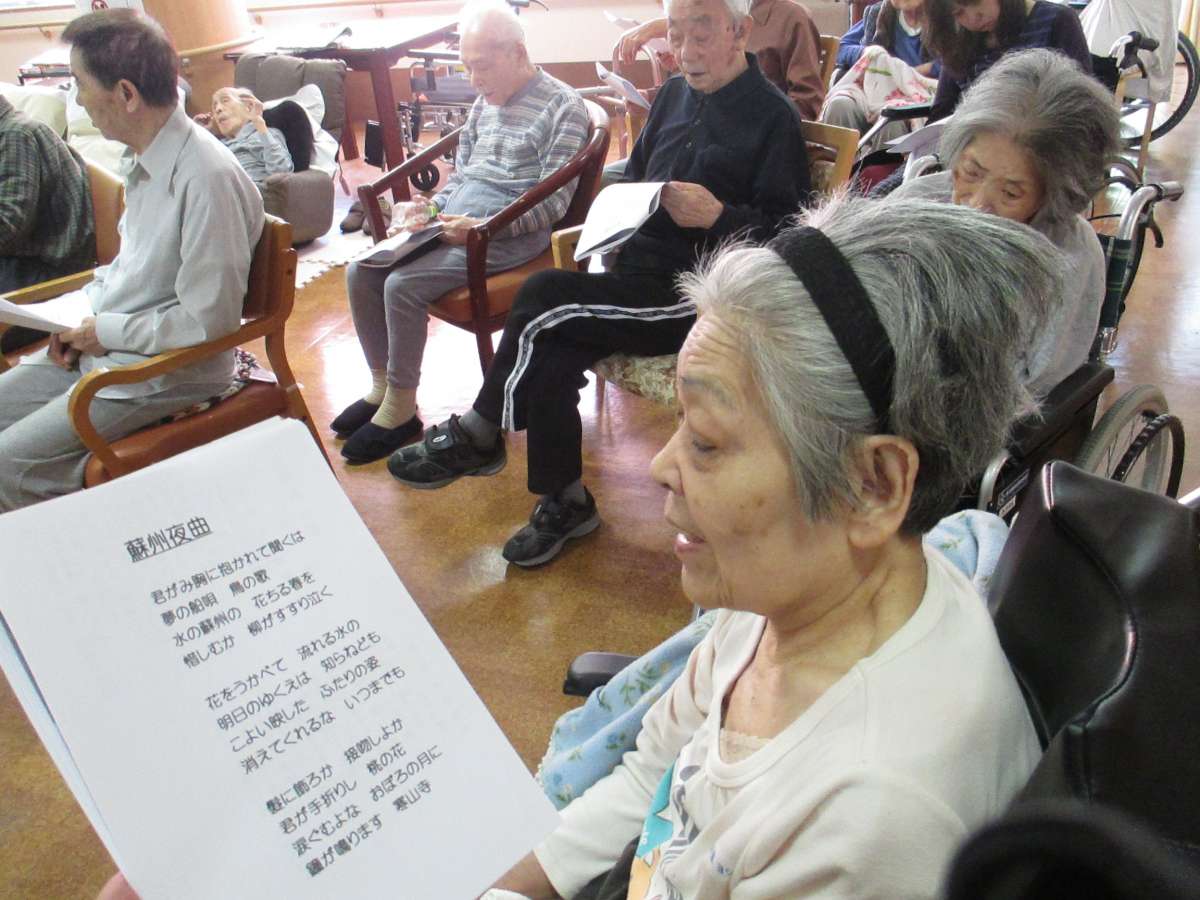 蘇州夜曲
君がみ胸に抱かれて聞くは
夢の船唄 鳥の歌
水の蘇州の 花ちる春を
惜しむか 柳がすすり泣く
花をうかべて 流れる水の
明日のゆくえは 知らねども
こよい映した ふたりの姿
消えてくれるな いつまでも
髪に飾ろか 接吻しよか
君が手折りし 桃の花
涙ぐむよな おぼろの月に
鐘が鳴ります 寒山寺